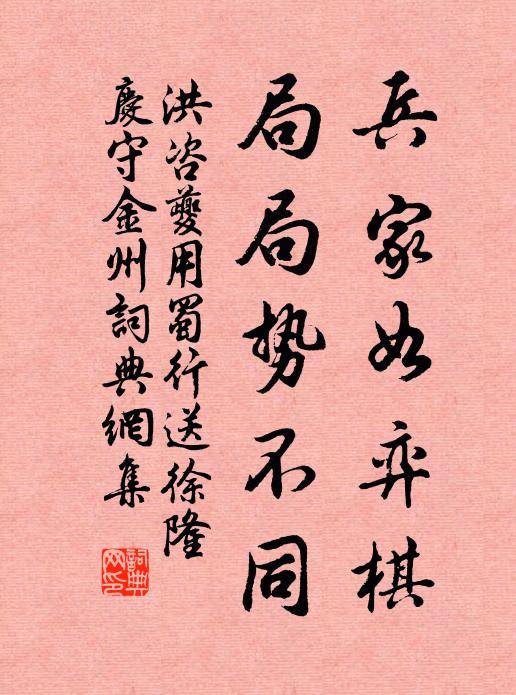 兵家如弈棋
局局势不同
洪咨夔用蜀行送徐隆
慶守金州詞典網集
詞典
网印